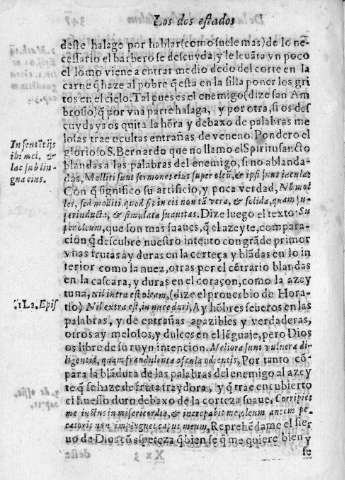 Los dos estados
deste halago por hablar (como suele mas) de lo ne-
cessario el barbero se descuyda, y le lleua vn poco
el lomo viene a entrar medio dedo del corte en la
carne q̃ haze al pobre q̃ esta en la silla poner los gri
tos en el cielo. Tal pues es el enemigo (dize san Am
brosio) q̃ por vna parte halaga, y por otra, si os des
cuydays os quita la hõra y debaxo de palabras me
losas trae ocultas entrañas de veneno. Pondero el
glorioso S. Bernardo que no llamo el Spiritu sancto
blandas a las palabras del enemigo, si no ablanda-
das. Molliti sunt sermones eius super oleũ, & ipsi sunt iacula;
Con q̃ significo su artificio, y poca verdad, Nõ mol
les, sed molliti quod sit in eis non tã vera, & solida, quam su-
perinducta, & simulata suauitas. Dize luego el texto Su
per oleum, que son mas suaues, q̃ el azeyte, compara-
cion q̃ descubre nuestro intento con grãde primor
y ñas frutas ay duras en la corteça y blãdas en lo in
terior como la nuez, otras por el cõtrario blandas
en la cascara, y duras en el coraçon, como la azey
tuna, Nil intra est oleam, (dize el prouerbio de Hora-
tio) Nil extra est, in nuce duri, Ay hõbres seueros en las
palabras, y de entrañas apazibles y verdaderas,
otros ay melosos, y dulces en el lẽguaje, pero Dios
os libre de lo tuyn intencion. Meliora sunt vulnera di-
ligentis, quam fraudulenta oscula odientis, Por tanto cõ
para la blãdura de las palabras del enemigo al azey
te q̃ se haze de fruta traydora, y q̃ trae encubierto
el huesso duro debaxo de la corteza suaue, Corripiet
me iustus in misericordia, & increpabit me, oleum autem pe-
catoris non impinguet caput meum, Reprehẽdame el sier
uo de Dios cũ aspereza q̃ bien se q̃ me quiere bien y
Xx 3 se
In sententijs
lac sub lin-
gua eius.
Li. 2. Epis